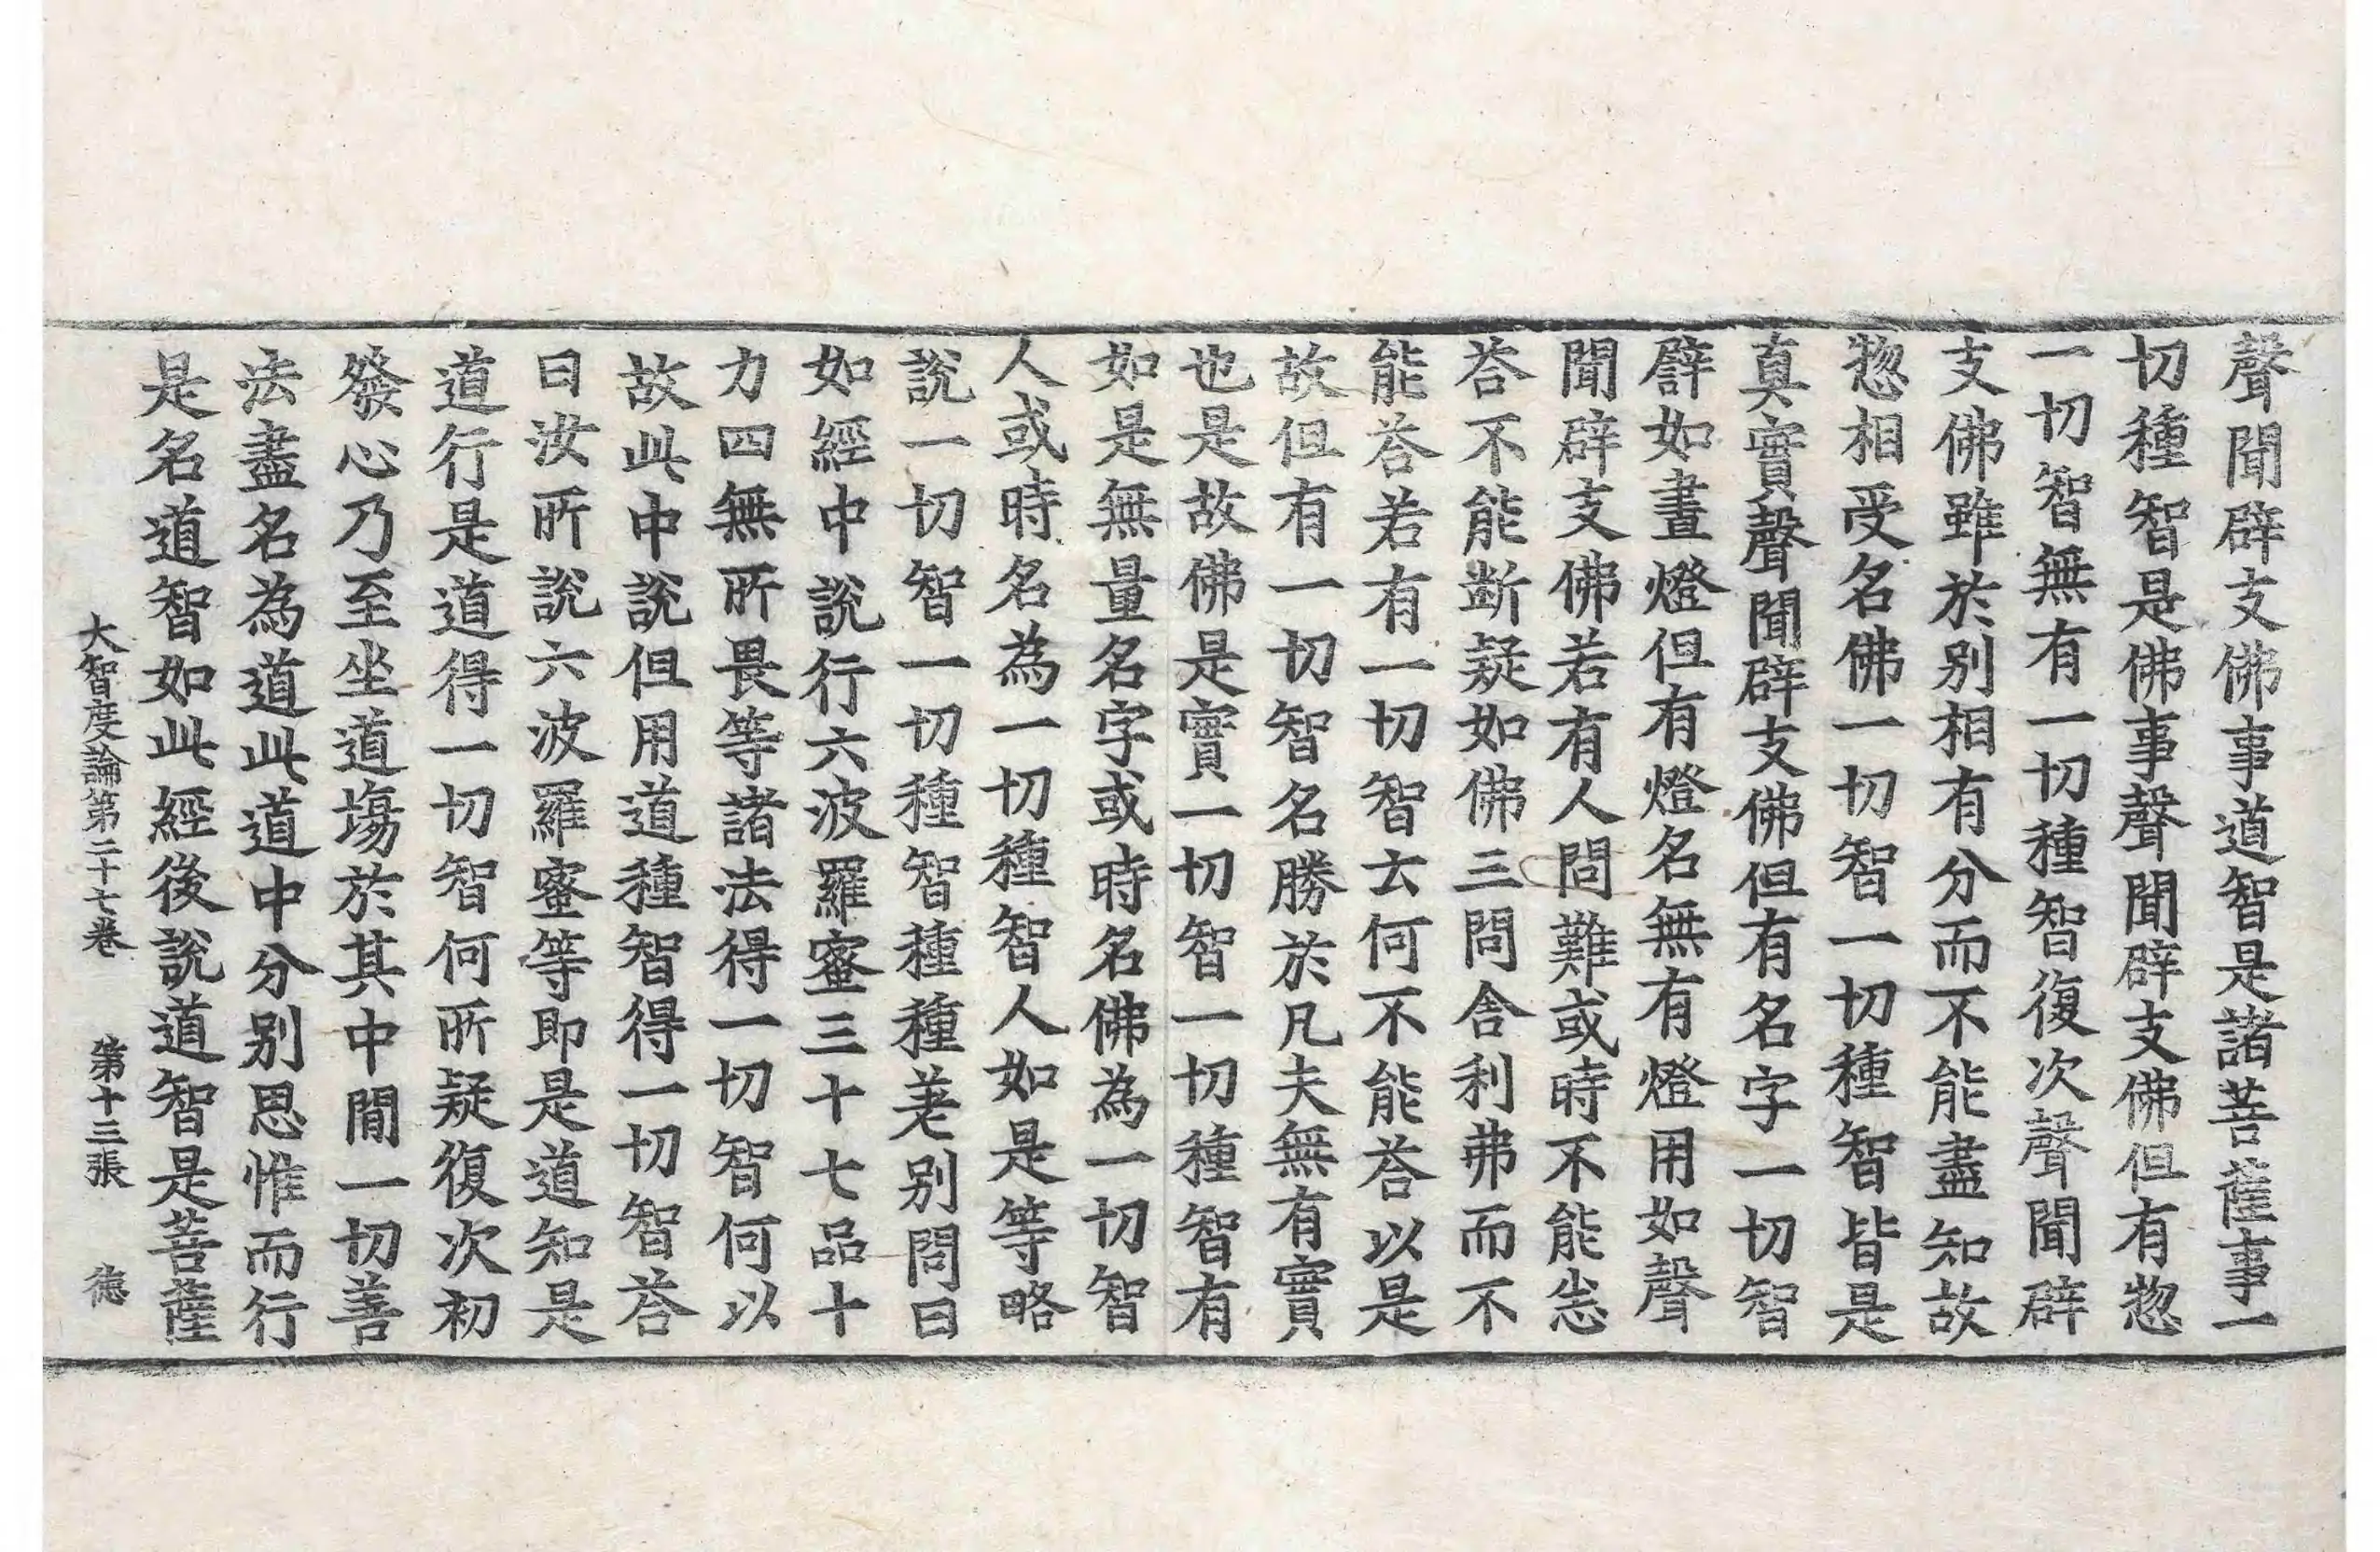 聲聞辟支佛事道智是諸菩薩事一
切種智是佛事聲聞辟支佛但有惣
一切智無有一切種智復次聲聞辟
支佛雖於別相有分而不能盡知故
惣相受名佛一切智一切種智皆是
真實聲聞辟支佛但有名字一切智
譬如晝燈但有燈名無有燈用如聲
聞辟支佛若有人問難或時不能悉
荅不能断疑如佛三問舍利弗而不
能荅若有一切智云何不能荅以是
故但有一切智名勝於凡夫無有實
也是故佛是實一切智一切種智有
如是無量名字或時名佛為一切智
人或時名為一切種智人如是等略
說一切智一切種智種種差別問曰
如經中說行六波羅蜜三十七品十
力四無所畏等諸法得一切智何以
故此中說但用道種智得一切智荅
曰汝所說六波羅蜜等即是道知是
道行是道得一切智何所疑復次初
發心乃至坐道場於其中間一切善
法盡名為道此道中分別思惟而行
是名道智如此經後說道智是菩薩
大智度論第二十七卷 第十三張 德